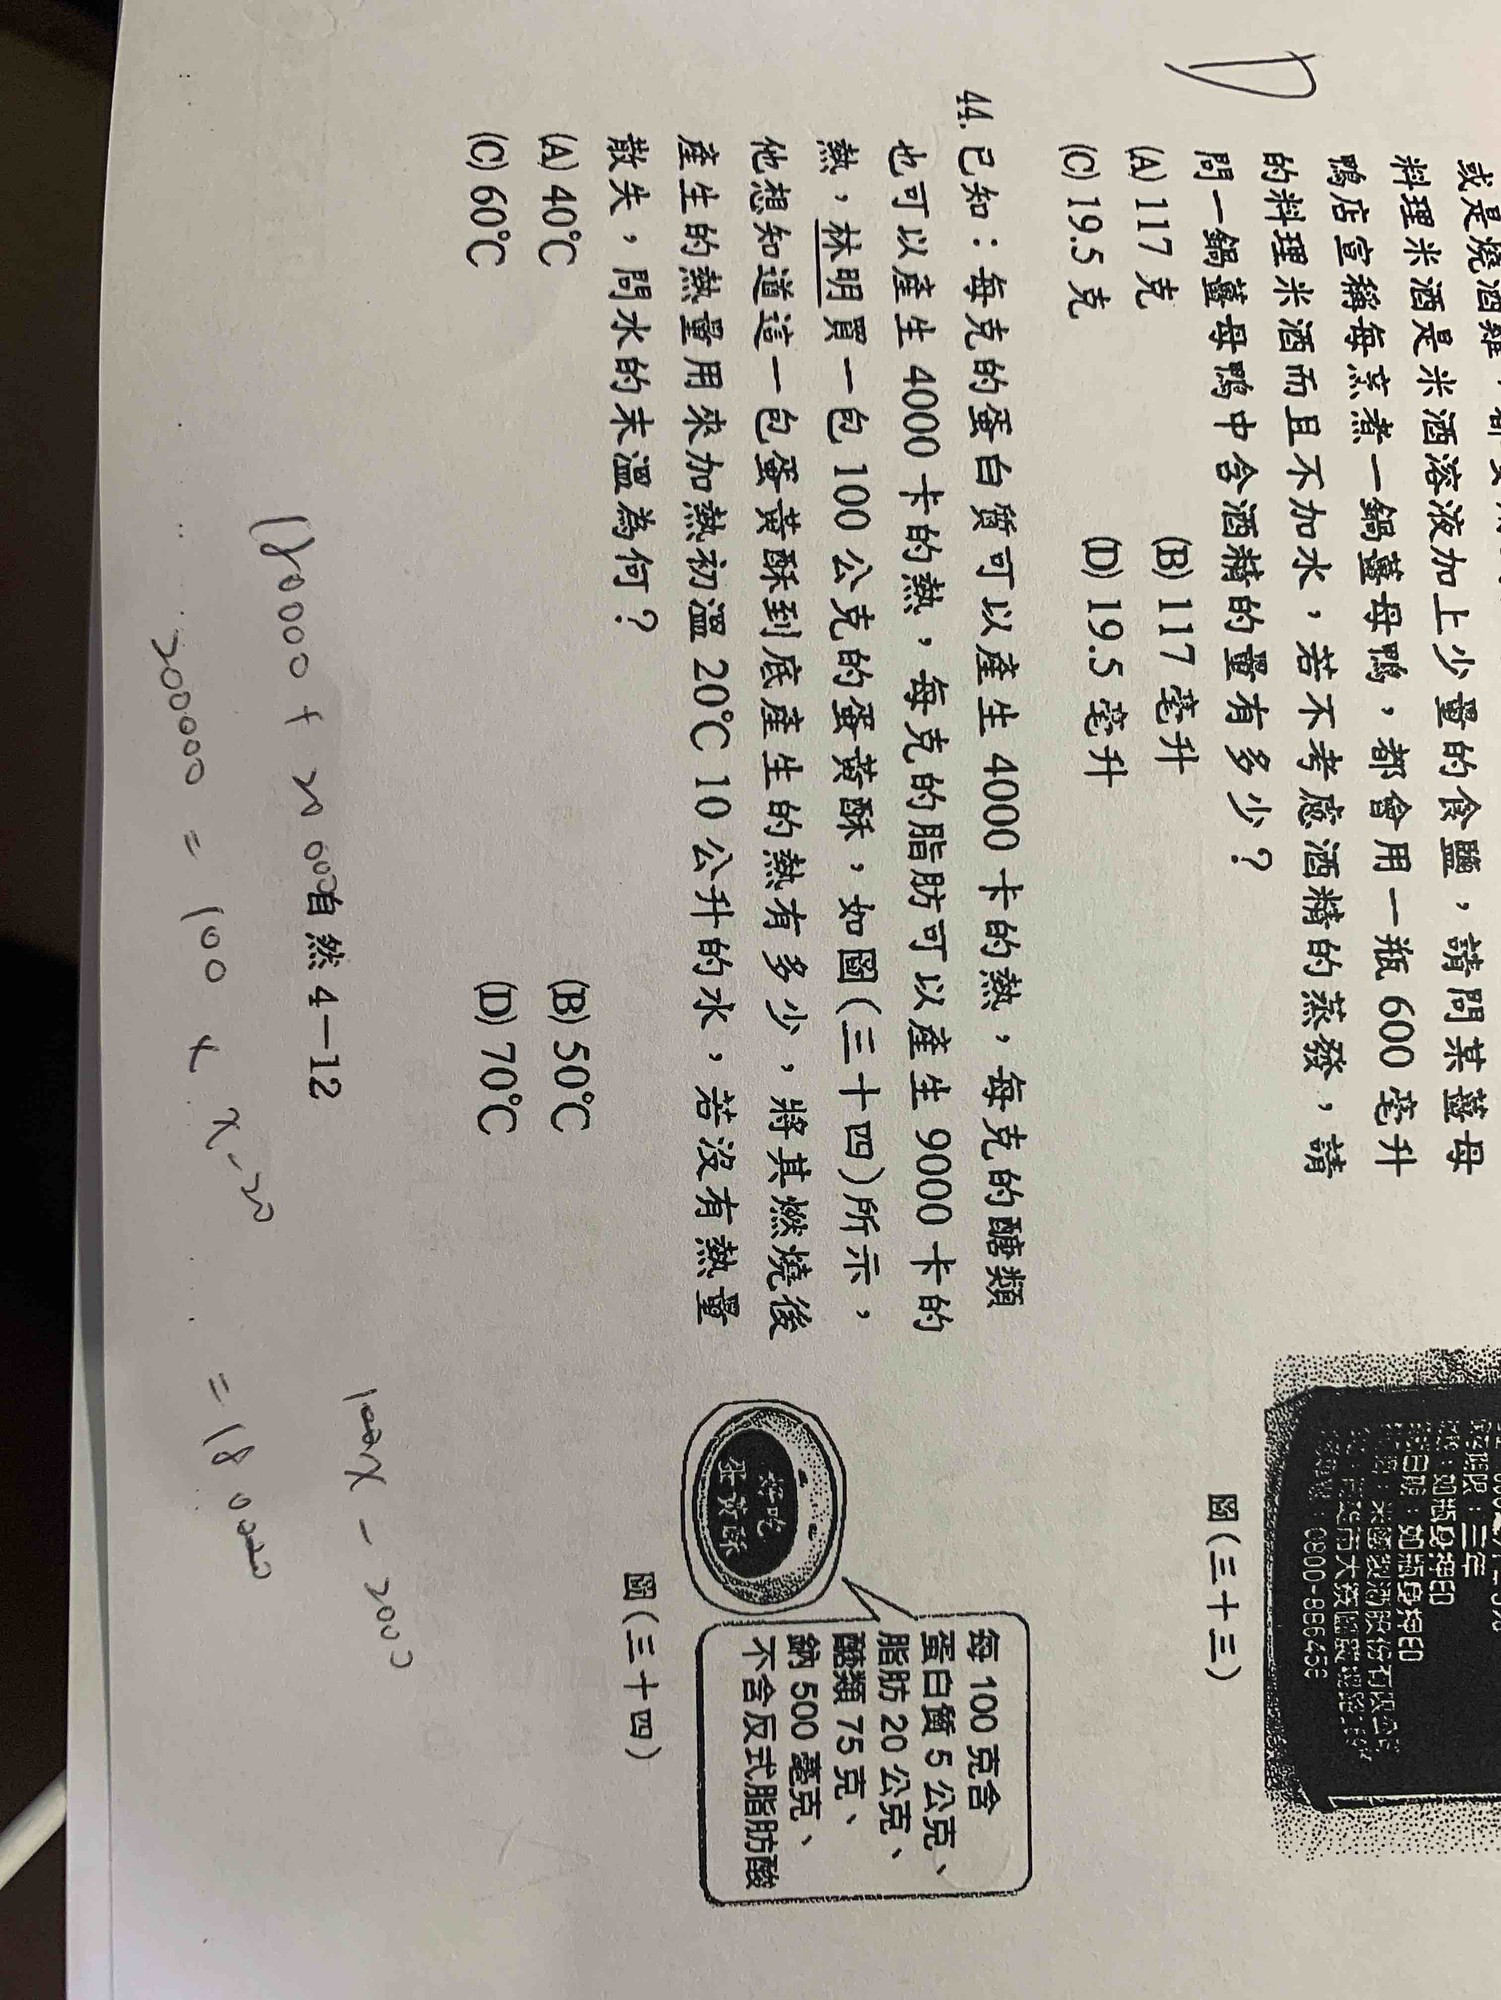 料理米酒是米酒溶液加上少量的食鹽，請問某薑母
鴨店宣稱每烹煮一鍋薑母鴨，都會用一瓶 600 毫升
的料理米酒而且不加水，若不考慮酒精的蒸發，請
問一鍋薑母鴨中含酒精的量有多少？
(A) 117 克 (B) 117 毫升
(C) 19.5 克 (D) 19.5 毫升
D
圖(三十三)
三年
0800-886458
44. 已知：每克的蛋白質可以產生 4000 卡的熱，每克的醣類
也可以產生 4000 卡的熱，每克的脂肪可以產生 9000 卡的
熱，林明買一包 100 公克的蛋黃酥，如圖(三十四)所示，
他想知道這一包蛋黃酥到底產生的熱有多少，將其燃燒後
產生的熱量用來加熱初溫 20℃ 10 公升的水，若沒有熱量
散失，問水的末溫為何？
(A) 40℃ (B) 50℃
(C) 60℃ (D) 70℃
好吃
蛋黃酥
每 100 克含
蛋白質 5 公克、
脂肪 20 公克、
醣類 75 克、
鈉 500 毫克、
不含反式脂肪酸
圖(三十四)
自然 4－12
180000 + 20000
200000 = 100 × x-20 = 180000
100x - 2000